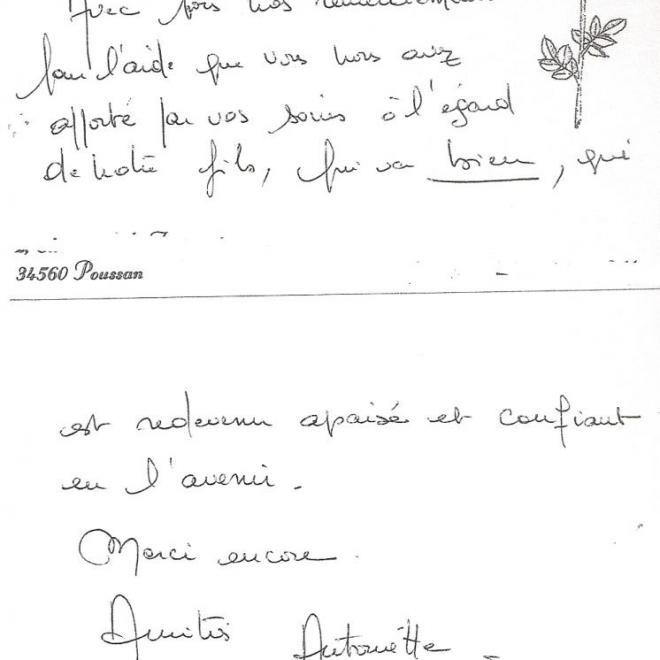 Avec tous nos remerciements
pour l'aide que vous nous avez
apporté par vos soins à l'égard
de notre fils, qui va bien, qui
34560 Poussan
est redevenu apaisé et confiant
en l'avenir.
Merci encore.
Amitiés Antoinette